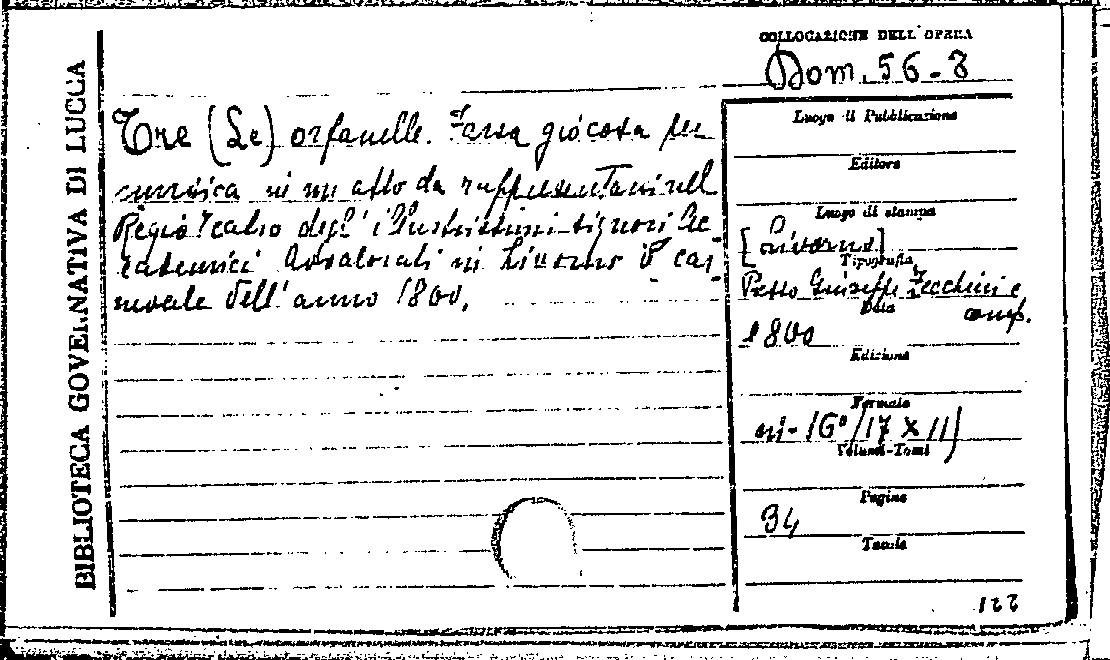 BIBLIOTECA GOVERNATIVA DI LUCCA
COLLOCAZIONE DELL'OPERA
Dom. 56-8
Tre (Le) orfanelle. Farsa giocosa per
musica in un atto da rappresentarsi nel
Regio Teatro degl'illustrissimi signori Ac-
cademici Avvalorati in Livorno il car-
novale dell'anno 1800.
Luogo di Pubblicazione
Editore
Luogo di stampa
[Livorno]
Tipografia
Presso Giuseppe Zecchini e
comp.
Data
1800
Edizione
Formato
in-16° (17 x 11)
Volumi-Tomi
Pagine
34
Tavole